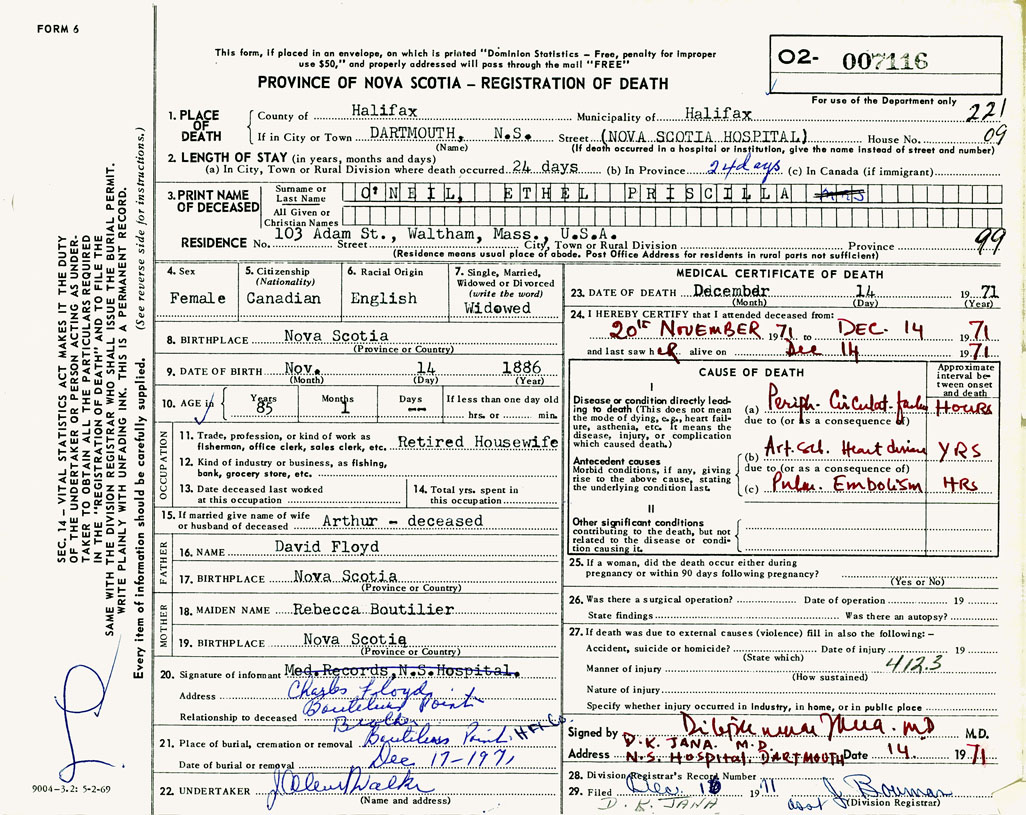 FORM 6
This form, if placed in an envelope, on which is printed "Dominion Statistics – Free, penalty for improper
use $50," and properly addressed will pass through the mail "FREE"
PROVINCE OF NOVA SCOTIA – REGISTRATION OF DEATH
02- 007116
For use of the Department only
221
1. PLACE OF DEATH
County of Halifax Municipality of Halifax
If in City or Town DARTMOUTH, N.S. Street (NOVA SCOTIA HOSPITAL) House No. 09
(Name) (If death occurred in a hospital or institution, give the name instead of street and number)
2. LENGTH OF STAY (in years, months and days)
(a) In City, Town or Rural Division where death occurred 24 days (b) In Province 24 days (c) In Canada (if immigrant)
3. PRINT NAME OF DECEASED
Surname or Last Name O'NEIL, ETHEL PRISCILLA
All Given or Christian Names
RESIDENCE No. 103 Adam St., Waltham, Mass., U.S.A. 99
Street City, Town or Rural Division Province
(Residence means usual place of abode. Post Office Address for residents in rural parts not sufficient)
4. Sex
Female
5. Citizenship
(Nationality)
Canadian
6. Racial Origin
English
7. Single, Married,
Widowed or Divorced
(write the word)
Widowed
8. BIRTHPLACE Nova Scotia
(Province or Country)
9. DATE OF BIRTH Nov. 14 1886
(Month) (Day) (Year)
10. AGE in Years 85 Months 1 Days -- If less than one day old
hrs. or min.
OCCUPATION
11. Trade, profession, or kind of work as
fisherman, office clerk, sales clerk, etc. Retired Housewife
12. Kind of industry or business, as fishing,
bank, grocery store, etc.
13. Date deceased last worked
at this occupation
14. Total yrs. spent in
this occupation
15. If married give name of wife
or husband of deceased Arthur – deceased
FATHER
16. NAME David Floyd
17. BIRTHPLACE Nova Scotia
(Province or Country)
MOTHER
18. MAIDEN NAME Rebecca Boutilier
19. BIRTHPLACE Nova Scotia
(Province or Country)
20. Signature of informant Med. Records, N.S. Hospital.
Charles Floyd
Address Boutiliers Point
Relationship to deceased Brother
21. Place of burial, cremation or removal Boutiliers Point, Hfx Co.
Date of burial or removal Dec 17-1971
22. UNDERTAKER
(Name and address)
MEDICAL CERTIFICATE OF DEATH
23. DATE OF DEATH December 14 1971
(Month) (Day) (Year)
24. I HEREBY CERTIFY that I attended deceased from:
20th NOVEMBER 1971 to DEC. 14 1971
and last saw her alive on Dec 14 1971
CAUSE OF DEATH
Approximate
interval be-
tween onset
and death
I
Disease or condition directly lead-
ing to death (This does not mean
the mode of dying, e.g., heart fail-
ure, asthenia, etc. It means the
disease, injury, or complication
which caused death.)
(a) Periph. Circulat. failure HOURS
due to (or as a consequence of)
Antecedent causes
Morbid conditions, if any, giving
rise to the above cause, stating
the underlying condition last.
(b) Art. scl. Heart disease YRS
due to (or as a consequence of)
(c) Pulm. Embolism HRS
II
Other significant conditions
contributing to the death, but not
related to the disease or condi-
tion causing it.
25. If a woman, did the death occur either during
pregnancy or within 90 days following pregnancy?
(Yes or No)
26. Was there a surgical operation? Date of operation 19
State findings Was there an autopsy?
27. If death was due to external causes (violence) fill in also the following: –
Accident, suicide or homicide? Date of injury 19
(State which)
412.3
Manner of injury
(How sustained)
Nature of injury
Specify whether injury occurred in industry, in home, or in public place
Signed by M.D. M.D.
D.K. JANA. M.D.
Address N.S. Hospital. DARTMOUTH Date 14 1971
28. Division Registrar's Record Number
29. Filed Dec. 1971
(Division Registrar)
D.K. JANA
SEC. 14 – VITAL STATISTICS ACT MAKES IT THE DUTY
OF THE UNDERTAKER OR PERSON ACTING AS UNDER-
TAKER TO OBTAIN ALL THE PARTICULARS REQUIRED
IN THE "REGISTRATION OF DEATH" AND TO FILE THE
SAME WITH THE DIVISION REGISTRAR WHO SHALL ISSUE THE BURIAL PERMIT.
WRITE PLAINLY WITH UNFADING INK. THIS IS A PERMANENT RECORD.
Every item of information should be carefully supplied. (See reverse side for instructions.)
9004-3.2: 5-2-69